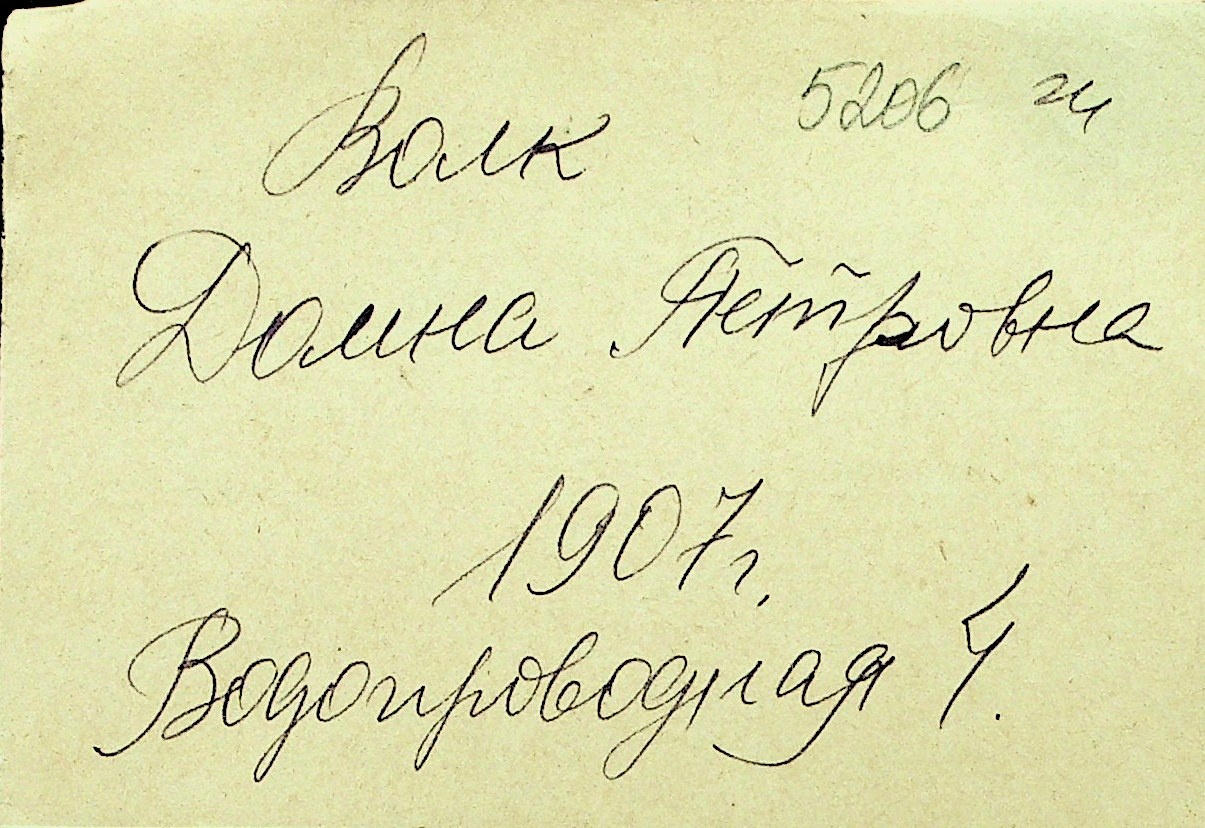 Волк 5206
Домна Петровна
1907г.
Водопроводная 4.